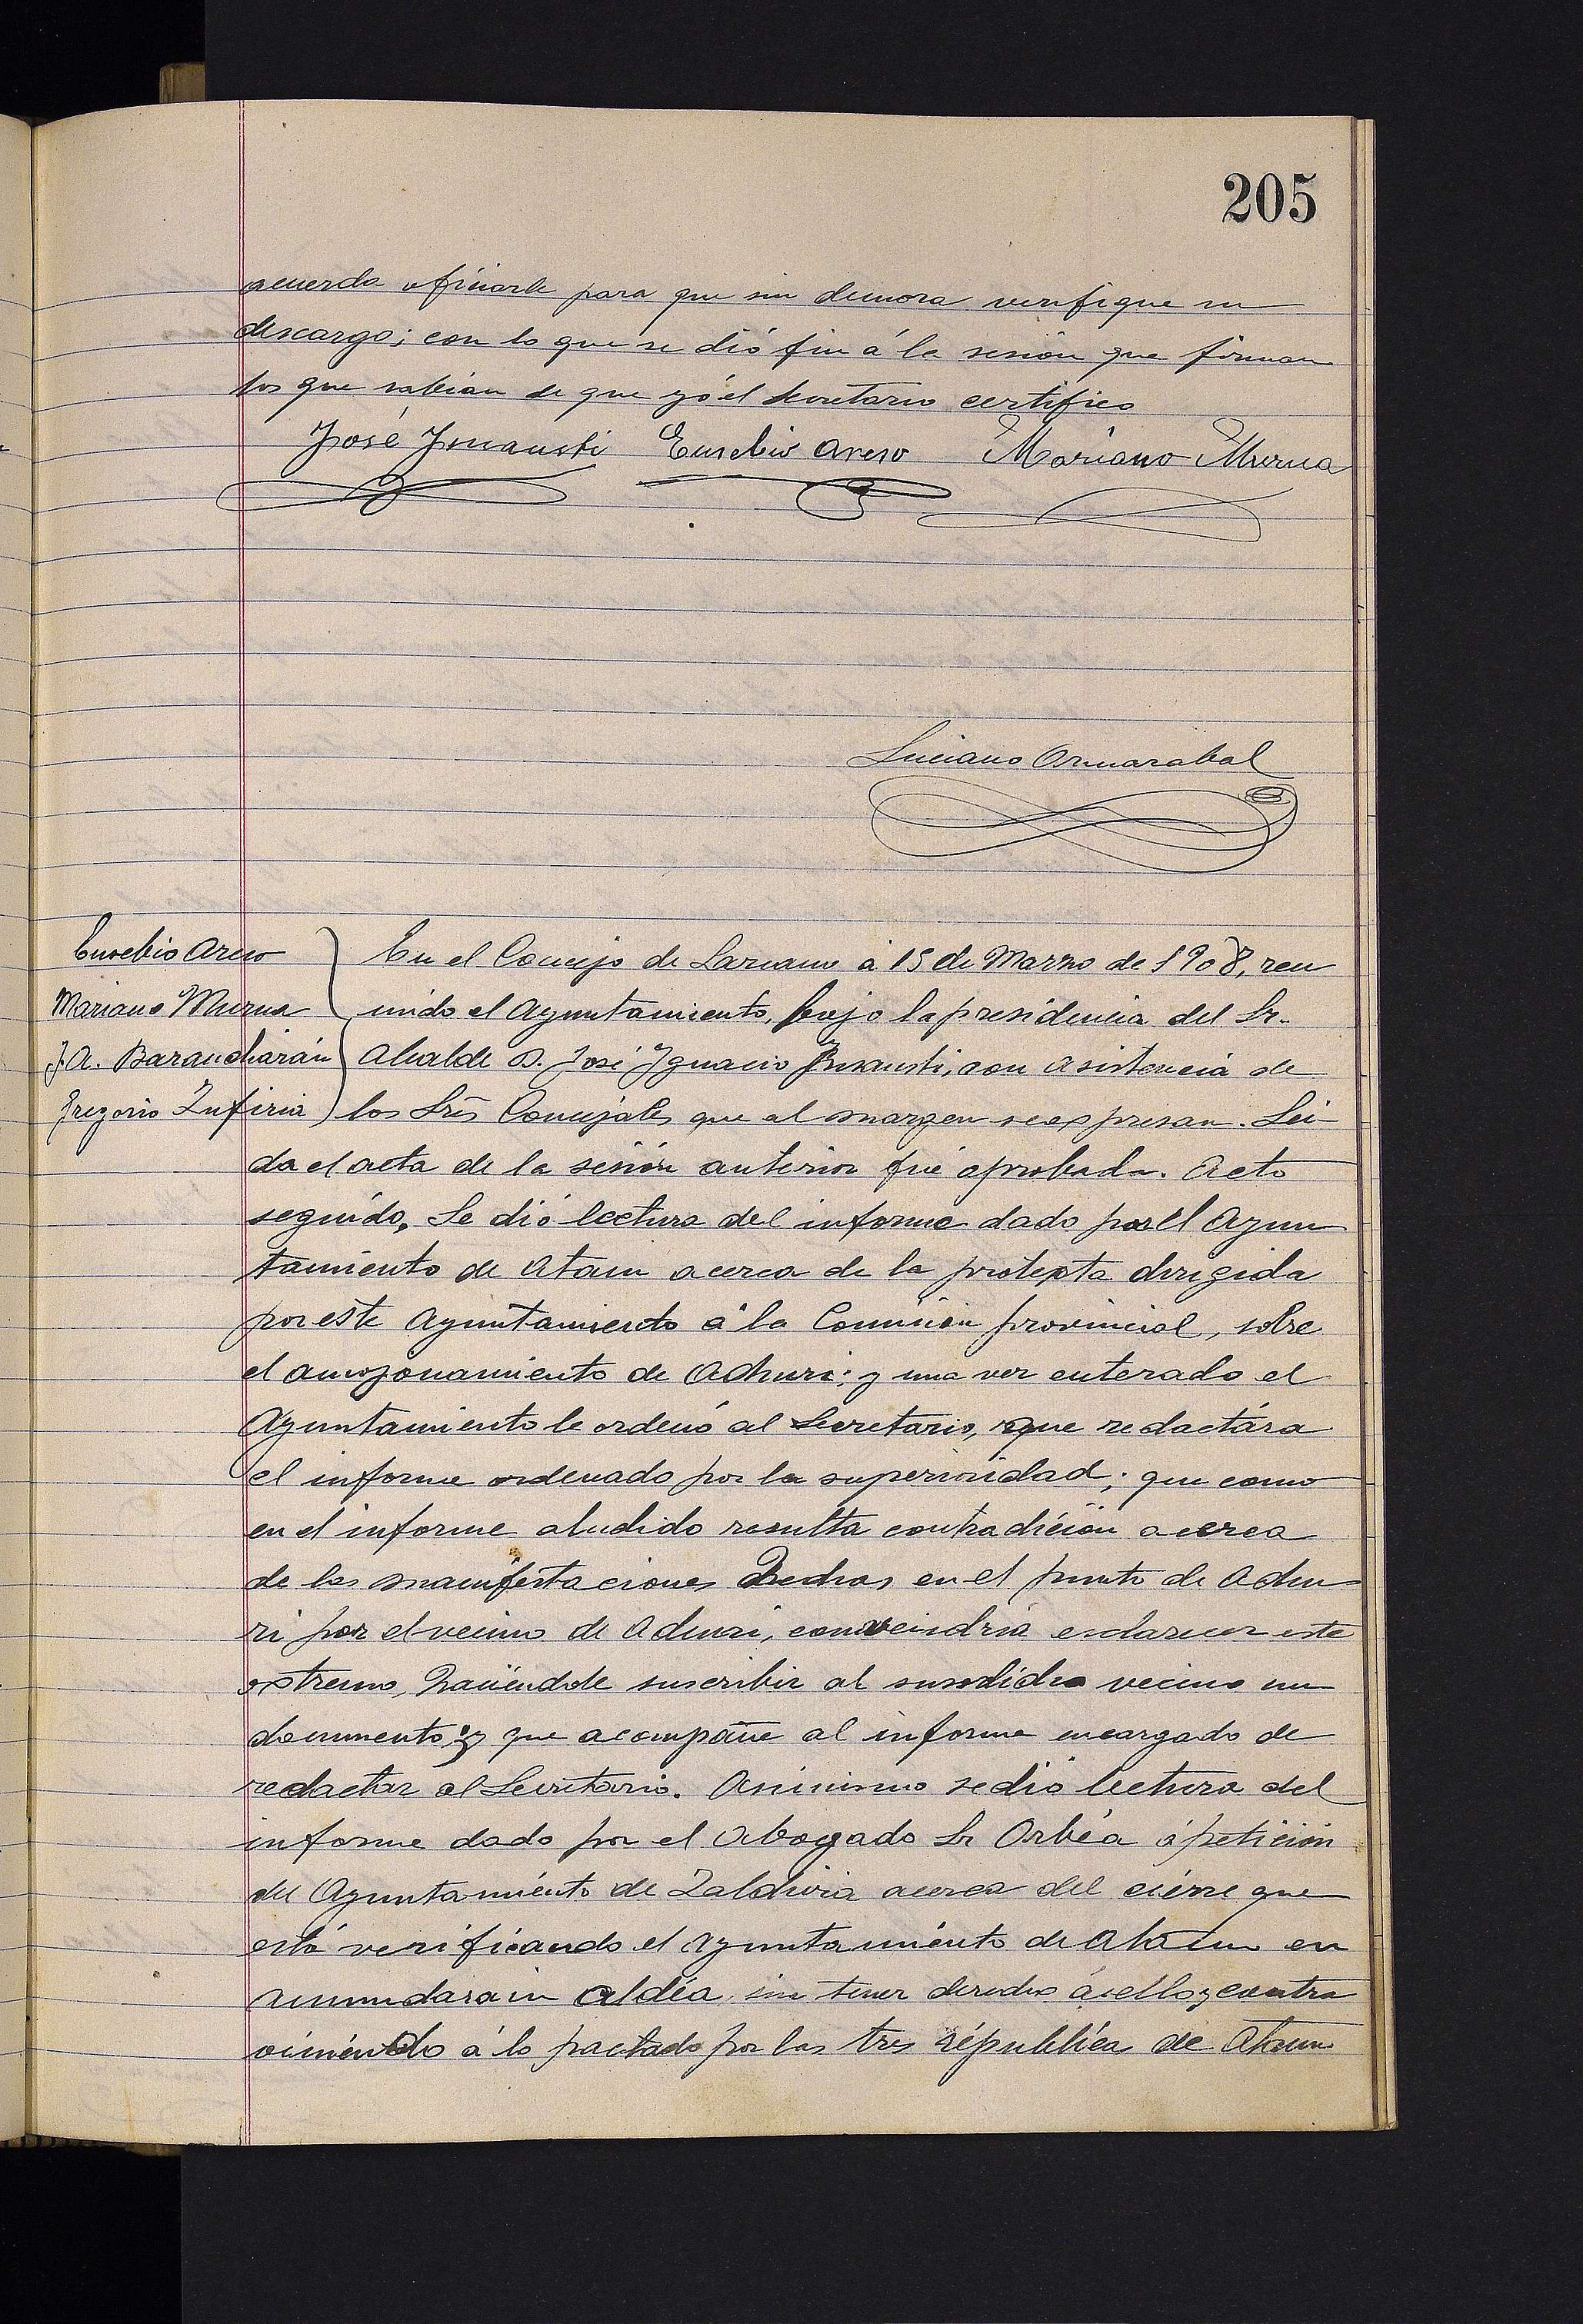 205
acuerda oficiarle para que sin demora verifique su
descargo; con lo que se dió fin á la sesión que firman
los que sabian de que yo el Secretario certifico
José Insausti Eusebio Areso Mariano Murua
Luciano Ormazabal
Eusebio Areso
Mariano Murua
J. A. Barandiarán
Gregorio Zufiria
En el Concejo de Lazcano á 15 de Marzo de 1908, reu
nido el Ayuntamiento, bajo la presidencia del Sr.
Alcalde D. José Ignacio Insausti, con asistencia de
los Srēs Concejales que al margen se expresan. Lei-
da el acta de la sesión anterior fué aprobada. Acto
seguido, Se dió lectura del informe dado por el Ayun
tamiento de Ataun acerca de la protexta dirigida
por este Ayuntamiento á la Comisión provincial, sobre
el amojonamiento de Aduri; y una vez enterado el
Ayuntamiento le ordenó al Secretario, que redactára
el informe ordenado por la superioridad; que como
en el informe aludido resulta contradición acerca
de las manifestaciones hechas en el punto de Adu
ri por el vecino de Aduri, convendria esclarecer este
extremo, haciendole suscribir al susodicho vecino un
documento; y que acompañe al informe encargado de
redactar al Secretario. Asimismo se dió lectura del
informe dado por el Abogado Sr Orbéa á petición
del Ayuntamiento de Zaldivia acerca del cierre que
está verificando el Ayuntamiento de Ataun en
aldéa, sin tener derecho á ello y contra
viniéndo á lo pactado por las tres répública de Ataun